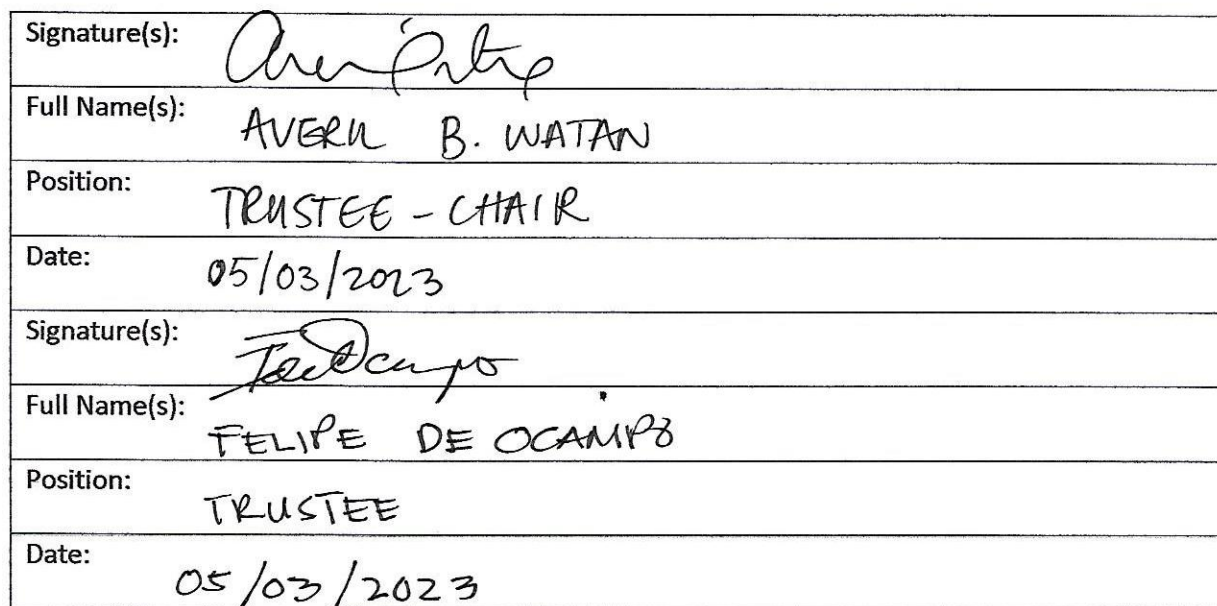 Signature(s):
Full Name(s): AVERIL B. WATAN
Position: TRUSTEE - CHAIR
Date: 05/03/2023
Signature(s):
Full Name(s): FELIPE DE OCAMPO
Position: TRUSTEE
Date: 05/03/2023